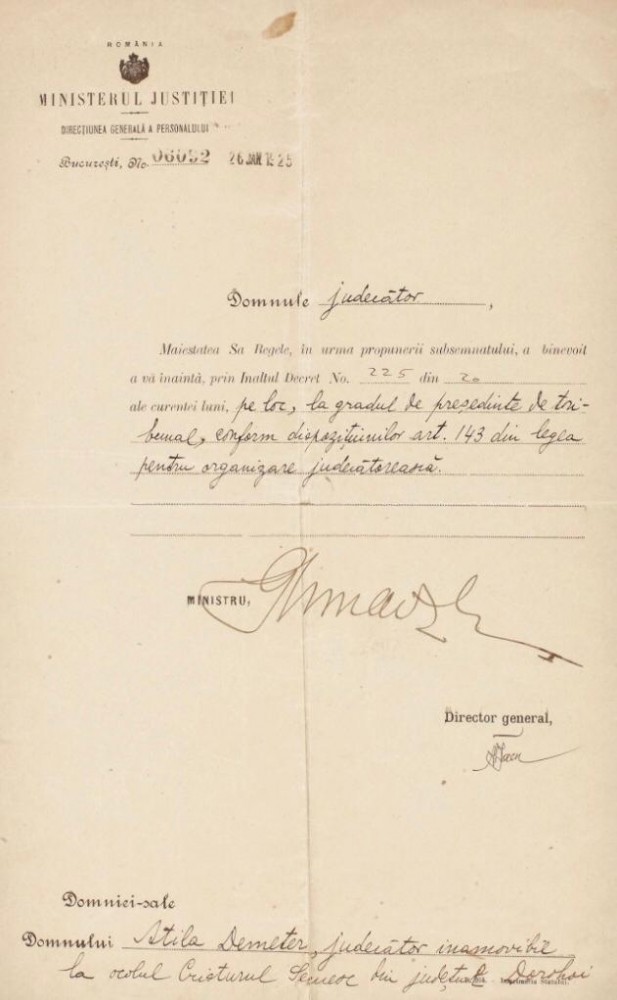 ROMÂNIA
MINISTERUL JUSTIȚIEI
DIRECȚIUNEA GENERALĂ A PERSONALULUI
București, No. 06052 26 JAN 1925
Domnule judecător,
Maiestatea Sa Regele, în urma propunerii subsemnatului, a binevoit
a vă înaintà, prin Inaltul Decret No. 225 din 20
ale curentei luni, pe loc, la gradul de președinte de tri-
bunal, conform dispozițiunilor art. 143 din legea
pentru organizare judecătorească.
MINISTRU,
Director general,
Domniei-sale
Domnului Atila Demeter, judecător inamovibil
la ocolul Cristurul Secuesc din județul